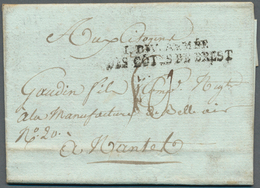 Aux Citoyens
1. DIV. ARMÉE
DES CÔTES DE BREST
Gaudin fils Comp. Negt.
a la Manufacture de Bell air
N.° 20.
à Nantes